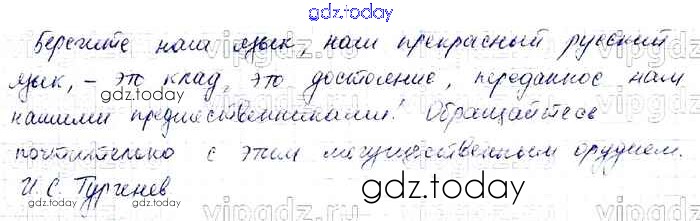 gdz.today
Берегите наш язык, наш прекрасный русский
язык, – это клад, это достояние, переданное нам
gdz.today
нашими предшественниками! Обращайтесь
почтительно с этим могущественным орудием.
И. С. Тургенев
gdz.today
gdz.today